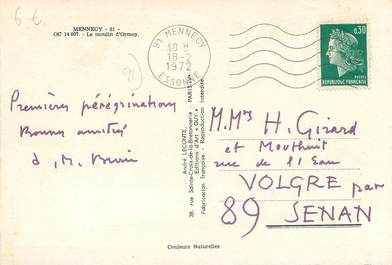 6-€
MENNECY - 91 -
OC 14 607. - Le moulin d'Ormoy.
91 MENNECY
18 H
18-2
1972
ESSONNE
0,30
91)
Premières pérégrinations
Bonnes amitiés
d. M.
André LECONTE,
38, rue Sainte-Croix-de-la-Bretonnerie - PARIS-IVe
Editions d'Art "GUY"
Fabrication française - Reproduction interdite
M.Mrs H. Girard
et Mouthuit
rue de l'Eau
VOLGRE par
89 SENAN
Couleurs Naturelles